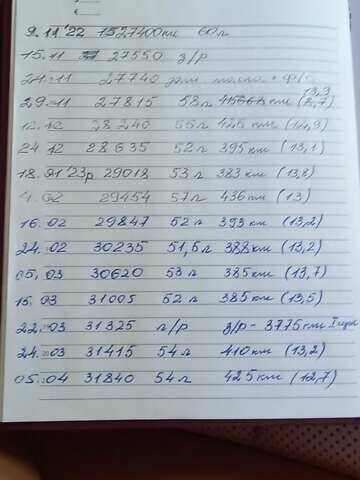 9.11 '22 1527400км 60л
15.11 27550 з/р
21.11 27740 зам. масла +
29.11 27815 53л 415км 13,3 (8,7)
12.12 28240 55л 425 км (12,9)
24.12 28635 52л 395км (13,1)
18.01'23р 29018 53л 383 км (13,8)
4.02 29454 57л 436км (13)
16.02 29847 52л 393 км (13,2)
24.02 30235 51,5л 388км (13,2)
05.03 30620 53л 385км (13,7)
15.03 31005 52л 385км (13,5)
22.03 31325 г/р з/р - 3775км
24.03 31415 54л 410км (13,2)
05.04 31840 54л 425км (12,7)